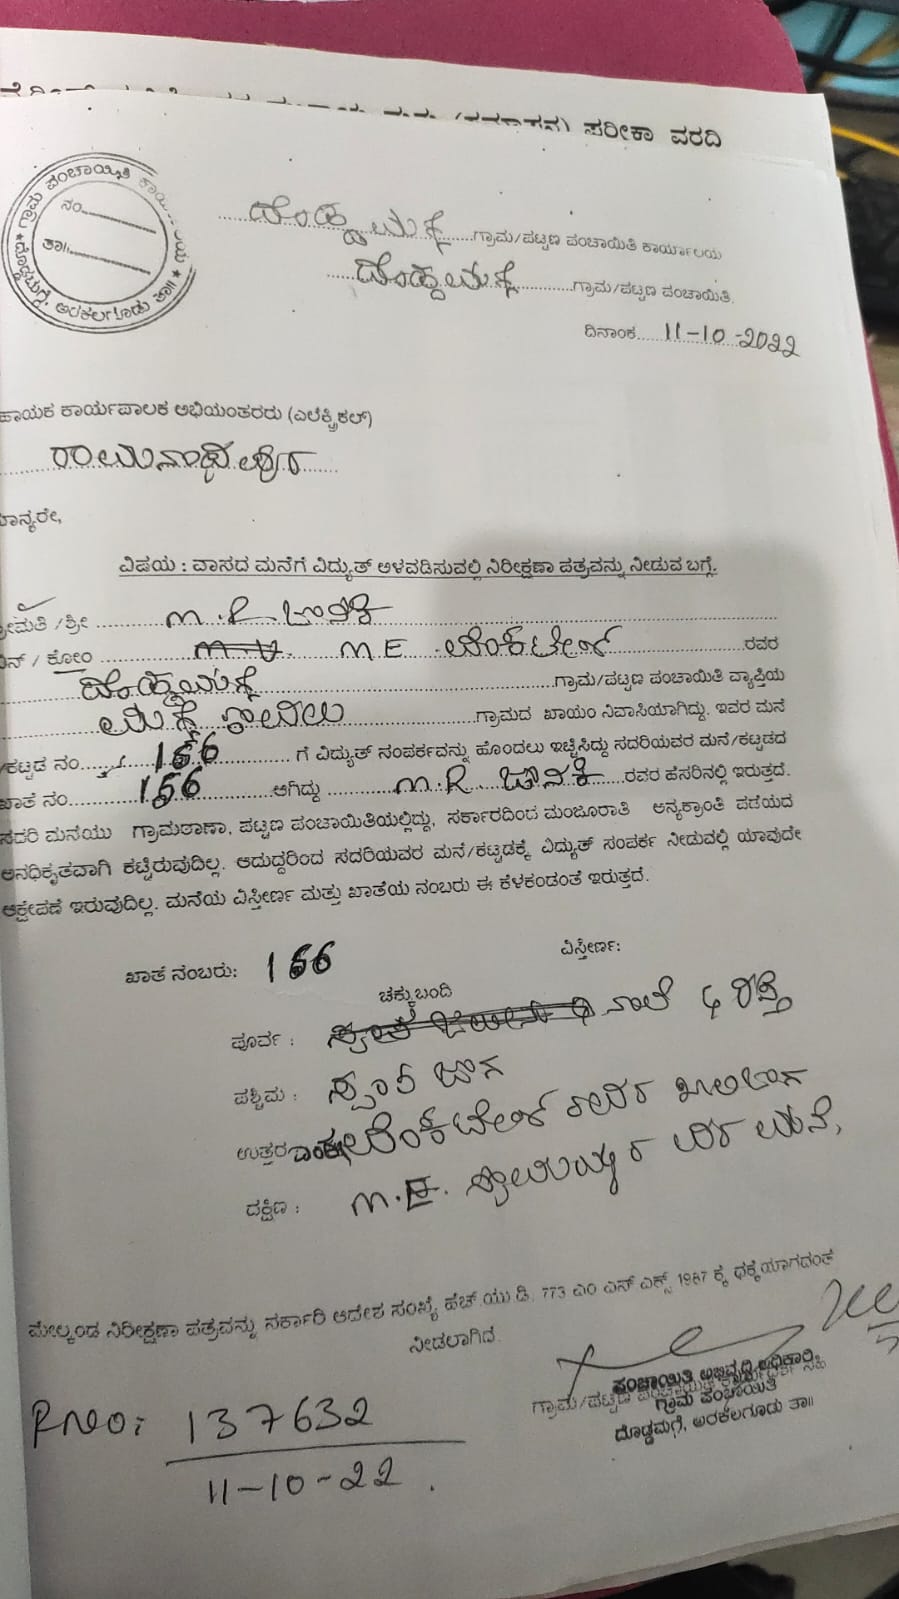 ಪರೀಕಾ ವರದಿ
ಗ್ರಾಮ ಪಂಚಾಯಿತಿ ಕಾರ್ಯಾಲಯ
ನಂ.
ತಾ॥
★ ದೊಡ್ಡಮಗ್ಗೆ, ಅರಕಲಗೂಡು ತಾ॥ ★
ದೊಡ್ಡಮಗ್ಗೆ ಗ್ರಾಮ/ಪಟ್ಟಣ ಪಂಚಾಯಿತಿ ಕಾರ್ಯಾಲಯ
ದೊಡ್ಡಮಗ್ಗೆ ಗ್ರಾಮ/ಪಟ್ಟಣ ಪಂಚಾಯಿತಿ.
ದಿನಾಂಕ 11-10-2022
ಹಾಯಕ ಕಾರ್ಯಪಾಲಕ ಅಭಿಯಂತರರು (ಎಲೆಕ್ಟ್ರಿಕಲ್)
ರಾಮನಾಥಪುರ
ಮಾನ್ಯರೇ,
ವಿಷಯ : ವಾಸದ ಮನೆಗೆ ವಿದ್ಯುತ್ ಅಳವಡಿಸುವಲ್ಲಿ ನಿರೀಕ್ಷಣಾ ಪತ್ರವನ್ನು ನೀಡುವ ಬಗ್ಗೆ.
ಶ್ರೀಮತಿ /ಶ್ರೀ M.R. ಜಾನಕಿ
ಬಿನ್ / ಕೋಂ M E ವೆಂಕಟೇಶ್ ರವರ
ದೊಡ್ಡಮಗ್ಗೆ ಗ್ರಾಮ/ಪಟ್ಟಣ ಪಂಚಾಯಿತಿ ವ್ಯಾಪ್ತಿಯ
ಗ್ರಾಮದ ಖಾಯಂ ನಿವಾಸಿಯಾಗಿದ್ದು. ಇವರ ಮನೆ
/ಕಟ್ಟಡ ನಂ 166 ಗೆ ವಿದ್ಯುತ್ ಸಂಪರ್ಕವನ್ನು ಹೊಂದಲು ಇಚ್ಛಿಸಿದ್ದು ಸದರಿಯವರ ಮನೆ/ಕಟ್ಟಡದ
ಖಾತೆ ನಂ 166 ಆಗಿದ್ದು M.R ಜಾನಕಿ ರವರ ಹೆಸರಿನಲ್ಲಿ ಇರುತ್ತದೆ.
ಸದರಿ ಮನೆಯು ಗ್ರಾಮಠಾಣಾ, ಪಟ್ಟಣ ಪಂಚಾಯಿತಿಯಲ್ಲಿದ್ದು, ಸರ್ಕಾರದಿಂದ ಮಂಜೂರಾತಿ ಅನ್ಯಕ್ರಾಂತಿ ಪಡೆಯದ
ಅನಧಿಕೃತವಾಗಿ ಕಟ್ಟಿರುವುದಿಲ್ಲ. ಆದುದ್ದರಿಂದ ಸದರಿಯವರ ಮನೆ/ಕಟ್ಟಡಕ್ಕೆ ವಿದ್ಯುತ್ ಸಂಪರ್ಕ ನೀಡುವಲ್ಲಿ ಯಾವುದೇ
ಆಕ್ಷೇಪಣೆ ಇರುವುದಿಲ್ಲ. ಮನೆಯ ವಿಸ್ತೀರ್ಣ ಮತ್ತು ಖಾತೆಯ ನಂಬರು ಈ ಕೆಳಕಂಡಂತೆ ಇರುತ್ತದೆ.
ಖಾತೆ ನಂಬರು: 166 ವಿಸ್ತೀರ್ಣ:
ಚಕ್ಕುಬಂದಿ
ಪೂರ್ವ : ನಾಲೆ & ರಸ್ತೆ
ಪಶ್ಚಿಮ : ಜಾಗ
ಉತ್ತರ ವೆಂಕಟೇಶ್ ರವರ ಖಾಲಿಜಾಗ
ದಕ್ಷಿಣ : M.E. ರವರ ಮನೆ,
ಮೇಲ್ಕಂಡ ನಿರೀಕ್ಷಣಾ ಪತ್ರವನ್ನು ಸರ್ಕಾರಿ ಆದೇಶ ಸಂಖ್ಯೆ ಹೆಚ್.ಯು.ಡಿ. 773 ಎಂ ಎನ್ ಎಕ್ಸ್ 1987 ಕ್ಕೆ ಧಕ್ಕೆಯಾಗದಂತೆ
ನೀಡಲಾಗಿದೆ.
ಪಂಚಾಯಿತಿ ಅಭಿವೃದ್ಧಿ ಅಧಿಕಾರಿ
ಗ್ರಾಮ/ಪಟ್ಟಣ ಪಂಚಾಯಿತಿ ಕಾರ್ಯದರ್ಶಿ ಸಹಿ
ಗ್ರಾಮ ಪಂಚಾಯಿತಿ
ದೊಡ್ಡಮಗ್ಗೆ, ಅರಕಲಗೂಡು ತಾ॥
RNO: 137632
11-10-22.